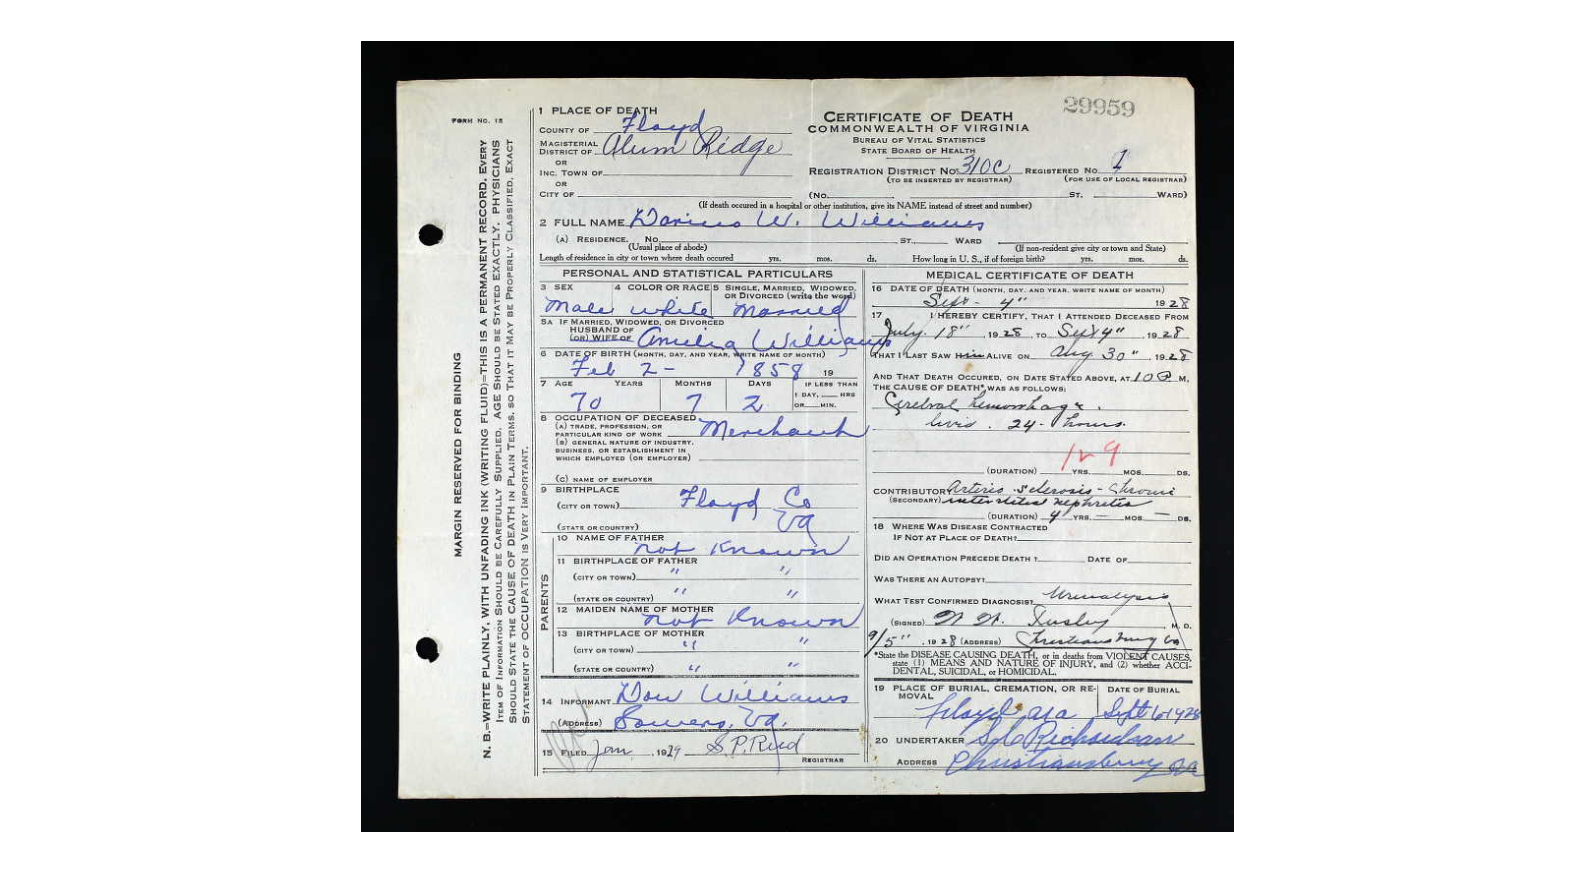 29959
FORM NO. 15
MARGIN RESERVED FOR BINDING
N. B.=WRITE PLAINLY, WITH UNFADING INK (WRITING FLUID)=THIS IS A PERMANENT RECORD. EVERY
ITEM OF INFORMATION SHOULD BE CAREFULLY SUPPLIED. AGE SHOULD BE STATED EXACTLY. PHYSICIANS
SHOULD STATE THE CAUSE OF DEATH IN PLAIN TERMS, SO THAT IT MAY BE PROPERLY CLASSIFIED. EXACT
STATEMENT OF OCCUPATION IS VERY IMPORTANT.
1 PLACE OF DEATH
COUNTY OF Floyd
MAGISTERIAL
DISTRICT OF Alum Ridge
OR
INC. TOWN OF
OR
CITY OF
CERTIFICATE OF DEATH
COMMONWEALTH OF VIRGINIA
BUREAU OF VITAL STATISTICS
STATE BOARD OF HEALTH
REGISTRATION DISTRICT No. 310C REGISTERED No. 1
(TO BE INSERTED BY REGISTRAR) (FOR USE OF LOCAL REGISTRAR)
(No. ST. WARD)
(If death occured in a hospital or other institution, give its NAME instead of street and number)
2 FULL NAME Darius W. Williams
(A) RESIDENCE. No. ST., WARD
(Usual place of abode) (If non-resident give city or town and State)
Length of residence in city or town where death occured yrs. mos. ds. How long in U. S., if of foreign birth? yrs. mos. ds.
PERSONAL AND STATISTICAL PARTICULARS
3 SEX 4 COLOR OR RACE 5 SINGLE, MARRIED, WIDOWED, OR DIVORCED (write the word)
Male white Married
5A IF MARRIED, WIDOWED, OR DIVORCED
HUSBAND OF
(OR) WIFE OF Amelia Williams
6 DATE OF BIRTH (MONTH, DAY, AND YEAR, WRITE NAME OF MONTH)
Feb 2- 1858 19
7 AGE YEARS MONTHS DAYS IF LESS THAN
1 DAY, HRS
OR MIN.
70 7 2
8 OCCUPATION OF DECEASED
(A) TRADE, PROFESSION, OR
PARTICULAR KIND OF WORK Merchant
(B) GENERAL NATURE OF INDUSTRY,
BUSINESS, OR ESTABLISHMENT IN
WHICH EMPLOYED (OR EMPLOYER)
(C) NAME OF EMPLOYER
9 BIRTHPLACE
(CITY OR TOWN) Floyd Co
(STATE OR COUNTRY) Va
PARENTS
10 NAME OF FATHER
not Known
11 BIRTHPLACE OF FATHER
(CITY OR TOWN) " "
(STATE OR COUNTRY) " "
12 MAIDEN NAME OF MOTHER
not Known
13 BIRTHPLACE OF MOTHER
(CITY OR TOWN) " "
(STATE OR COUNTRY) " "
14 INFORMANT Dow Williams
(ADDRESS) Sowers, Va.
15 FILED Jan, 1929 S.P. Reed
REGISTRAR
MEDICAL CERTIFICATE OF DEATH
16 DATE OF DEATH (MONTH, DAY, AND YEAR, WRITE NAME OF MONTH)
Sept - 4" 1928
17 I HEREBY CERTIFY, THAT I ATTENDED DECEASED FROM
July 18" , 1928, TO Sept 4" , 1928
THAT I LAST SAW him ALIVE ON Aug 30" , 1928
AND THAT DEATH OCCURED, ON DATE STATED ABOVE, AT 10 P. M.
THE CAUSE OF DEATH* WAS AS FOLLOWS:
Cerebral hemorrhage.
24- hours.
129
(DURATION) YRS. MOS. DS.
CONTRIBUTORY Arterio sclerosis - Chronic
(SECONDARY) interstitial nephritis
(DURATION) 4 YRS. — MOS. — DS.
18 WHERE WAS DISEASE CONTRACTED
IF NOT AT PLACE OF DEATH?
DID AN OPERATION PRECEDE DEATH? DATE OF
WAS THERE AN AUTOPSY?
WHAT TEST CONFIRMED DIAGNOSIS? Urinalysis
(SIGNED) , M. D.
9/5" , 1928 (ADDRESS) Christiansburg Va
*State the DISEASE CAUSING DEATH, or in deaths from VIOLENT CAUSES,
state (1) MEANS AND NATURE OF INJURY, and (2) whether ACCI-
DENTAL, SUICIDAL, or HOMICIDAL.
19 PLACE OF BURIAL, CREMATION, OR RE-
MOVAL DATE OF BURIAL
Floyd Va Sept 6 1928
20 UNDERTAKER Richardson
ADDRESS Christiansburg Va